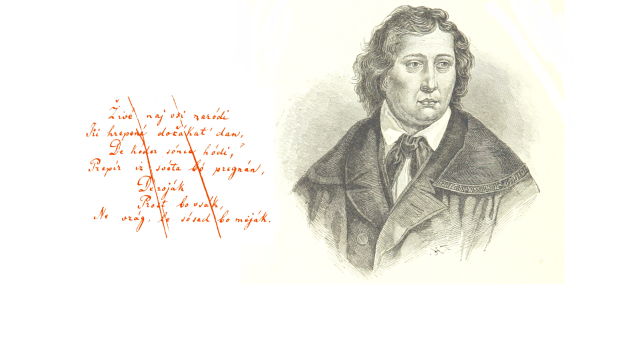 Živé naj vsi naródi
Ki hrepené dočákat' dan,
De koder sónce hódi,
Prepír iz svéta bó pregnán,
De roják
Prost bo vsák,
Ne vrág, le sósed bo mèják.